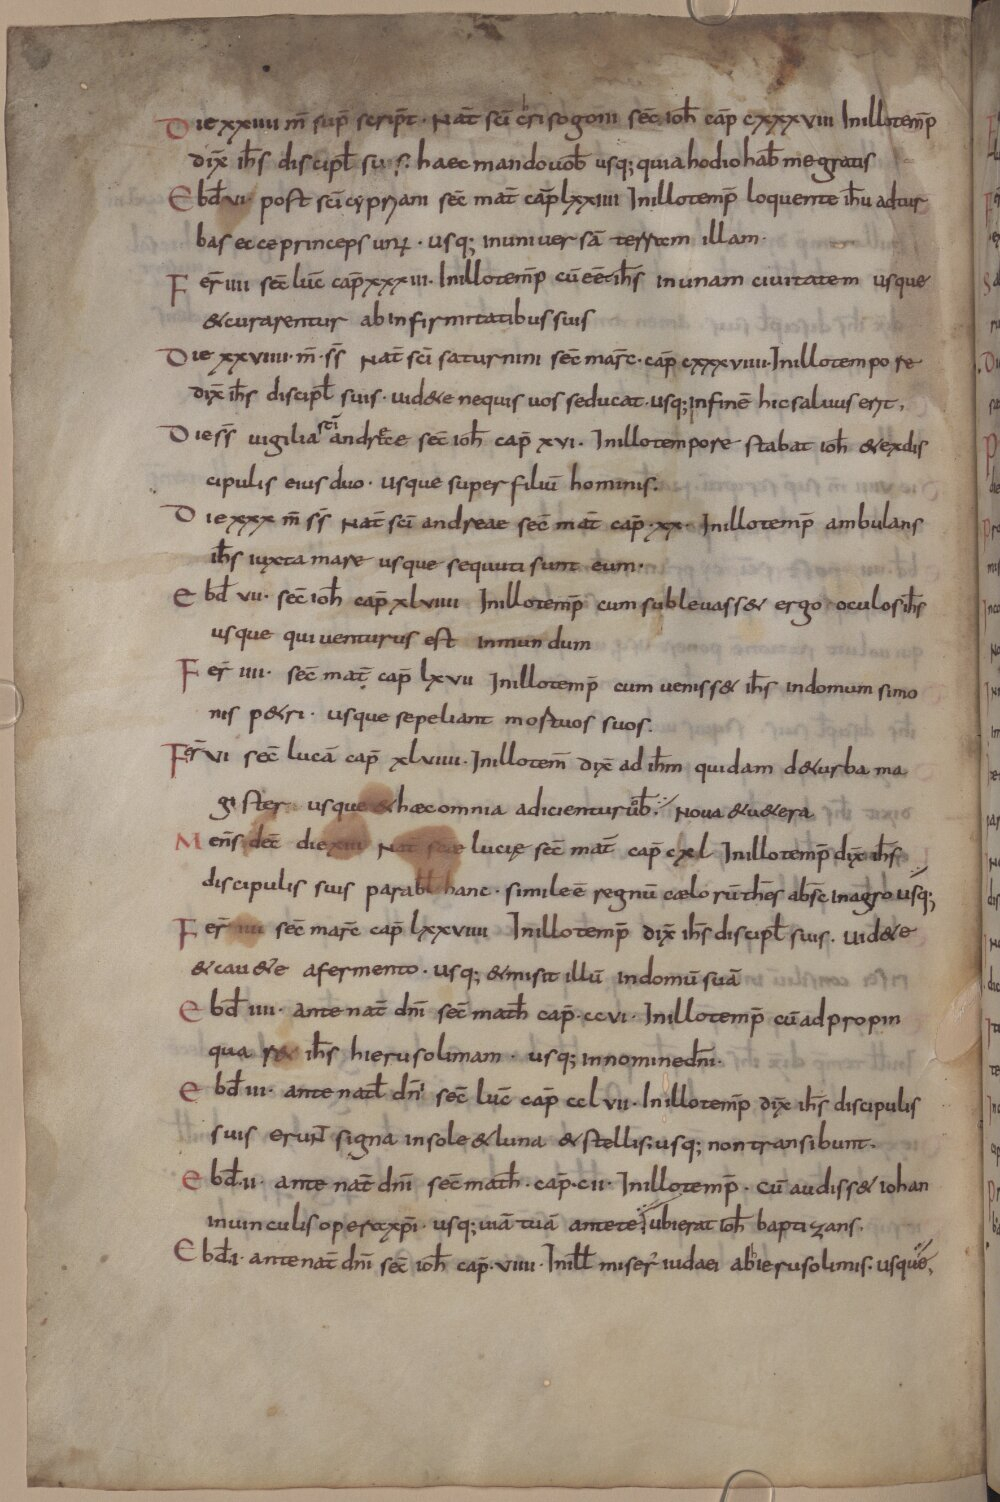 Die xxiiii m̄ sup̄ script̄ · Nat̄ sc̄i crisogoni sec̄ ioh̄ cap̄ cxxxviii Inillotemp̄
dix̄ ih̄s discipl̄ suis haec mando uob̄ usq; quia hodio hab̄ me gratis
Ebd̄ vi · post sc̄i cypriani sec̄ mat̄ cap̄ lxxiiii Inillotemp̄ loquente ih̄u adtur
bas ecce princeps unꝝ · usq; inuniuersā terram illam·
Fer̄ iiii sec̄ luc̄ cap̄ xxxiii· Inillotemp̄ cū eēt ih̄s inunam ciuitatem usque
&curarentur abinfirmitatibus suis
Die xxviiii · m̄ · ss̄ Nat̄ sc̄i saturnini sec̄ marc̄ · cap̄ cxxxviiii · Inillotempore
dix̄ ih̄s discipl̄ suis · uid&e nequis uos seducat · usq; infinē hic saluus erit,
Die ss̄ uigilia sc̄i andreae sec̄ ioh̄ cap̄ xvi · Inillotempore stabat ioh̄ &exdis
cipulis eius duo · usque super filiū hominis·
Die xxx m̄ ss̄ Nat̄ sc̄i andreae sec̄ mat̄ cap̄ · xx · Inillotemp̄ ambulans
ih̄s iuxta mare usque sequuti sunt eum·
Ebd̄ vii · sec̄ ioh̄ cap̄ xlviiii Inillotemp̄ cum subleuass& ergo oculos ih̄s
usque qui uenturus est inmundum
Fer̄ iiii · sec̄ mat̄ cap̄ lxvii Inillotemp̄ cum ueniss& ih̄s indomum simo
nis p&ri · usque sepeliant mortuos suos.
Fer̄ vi sec̄ lucā cap̄ xlviiii · Inillotem̄ dix̄ ad ih̄m quidam d&urba ma
gister usque &hæc omnia adicientur uob̄ · Noua &u&era
Mens̄ dec̄ die xiii Nat̄ scae lucię sec̄ mat̄ cap̄ cxl Inillotemp̄ dix̄ ih̄s
discipulis suis parabl̄ hanc · simile ē regnū cælorū thes̄ absc̄ inagro usq;
Fer̄ iiii sec̄ marc̄ cap̄ lxxviiii Inillotemp̄ dix̄ ih̄s discipl̄ suis · uid&e
&cau&e afermento · usq; &misit illū indomū suā
Ebd̄ iiii · ante nat̄ dn̄i sec̄ math̄ cap̄ · ccvi · Inillotemp̄ cū adpropin
quar& ih̄s hierusolimam · usq; innomine dn̄i·
Ebd̄ iii · ante natl̄ dn̄i sec̄ luc̄ cap̄ cclvii · Inillotemp̄ dix̄ ih̄s discipulis
suis erunt signa insole &luna &stellis · usq; non transibunt·
Ebd̄ · ii · ante nat̄ dn̄i sec̄ math̄ · cap̄ · cii · Inillotemp̄ · cū audiss& iohan
inuinculis opera xp̄i · usq; uiā tuā ante te ubi erat ioh̄ baptizans·
Ebd̄ · i · ante nat̄ dn̄i sec̄ ioh̄ cap̄ · viiii · Inill̄ miser̄ iudaei abierusolimis · usque